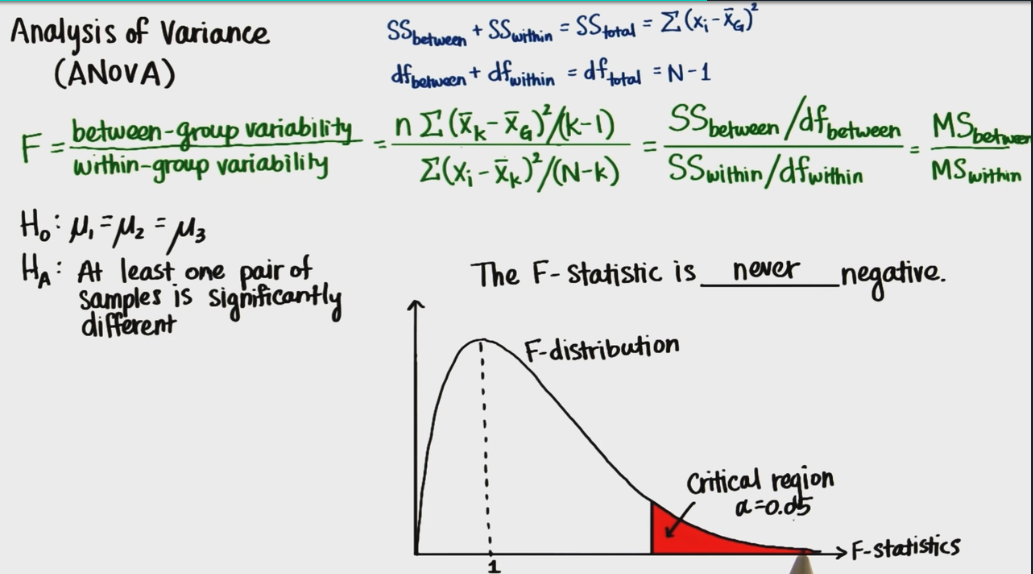 Analysis of Variance
(ANOVA)
SSbetween + SSwithin = SStotal = Σ(xᵢ - x̄G)²
dfbetween + dfwithin = dftotal = N-1
F = between-group variability / within-group variability = n Σ(x̄k - x̄G)²/(k-1) / Σ(xᵢ - x̄k)²/(N-k) = SSbetween/dfbetween / SSwithin/dfwithin = MSbetween / MSwithin
H₀: μ₁ = μ₂ = μ₃
HA: At least one pair of
samples is significantly
different
The F-statistic is never negative.
F-distribution
Critical region
α=0.05
F-statistics
1